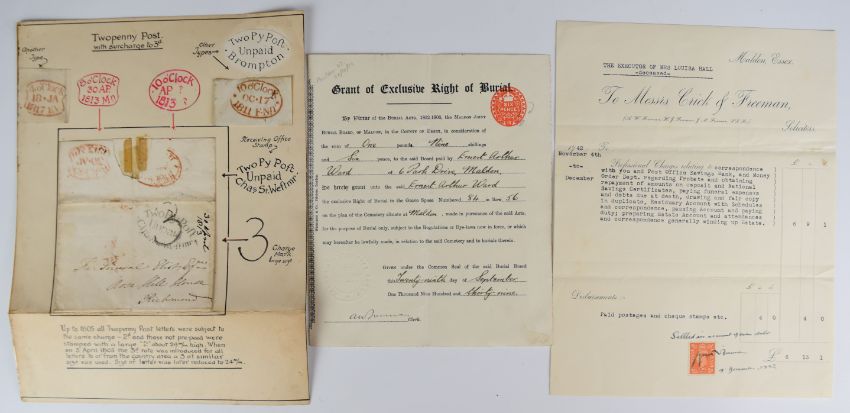 Twopenny Post.
with surcharge to 3d
Another
Type
Other
Types
Two Py Post
Unpaid
Brompton
8 o'Clock
30 AP
1813 Mn
10 o'Clock
AP ?
1813 ?
10 o'Clock
OC·17
1811 F·Nn
Receiving Office
Stamp
Two Py Post
Unpaid
Chas St. Westmr
3
Charge
Mark
Richmond
Up to 1805 all Twopenny Post letters were subject to
the same charge – 2d and those not pre-paid were
stamped with a large "2" about 29 m/m high. When
on 5 April 1805 the 3d rate was introduced for all
letters to or from the country area a 3 of similar
size was used. Size of letter was later reduced to 24 m/m
Grant of Exclusive Right of Burial.
SIX
PENCE
By Virtue of the Burial Acts, 1852-1906, the Maldon Joint
Burial Board, of Maldon, in the County of Essex, in consideration of
the sum of One pounds, Nine shillings
and Six pence, to the said Board paid by Ernest Arthur
Ward of 6 Park Drive, Maldon,
Do hereby grant unto the said Ernest Arthur Ward
the exclusive Right of Burial to the Grave Space Numbered 84 in Row 56
on the plan of the Cemetery situate at Maldon, made in pursuance of the said Acts,
for the purpose of Burial only, subject to the Regulations or Bye-laws now in force, or which
may hereafter be lawfully made, in relation to the said Cemetery and to burials therein.
Given under the Common Seal of the said Burial Board
this Twenty ninth day of September
One Thousand Nine Hundred and thirty nine.
Clerk.
Maldon, Essex.
THE EXECUTOR OF MRS LOUISA HALL
-deceased-
To Messrs Crick & Freeman,
Solicitors.
1942 To
November 4th
to
December
Professional Charges relating to correspondence
with you and Post Office Savings Bank, and Money
Order Dept. regarding Probate and obtaining
repayment of amounts on deposit and National
Savings Certificates, paying funeral expenses
and debts due at death, drawing and fair copy
in duplicate, Residuary Account with Schedules
and correspondence, passing Account and paying
duty; preparing Estate Account and attendances
and correspondence generally winding up Estate.
6 9 1
Disbursements:-
Paid postages and cheque stamps etc.
4 0
4 0
£ 6 13 1